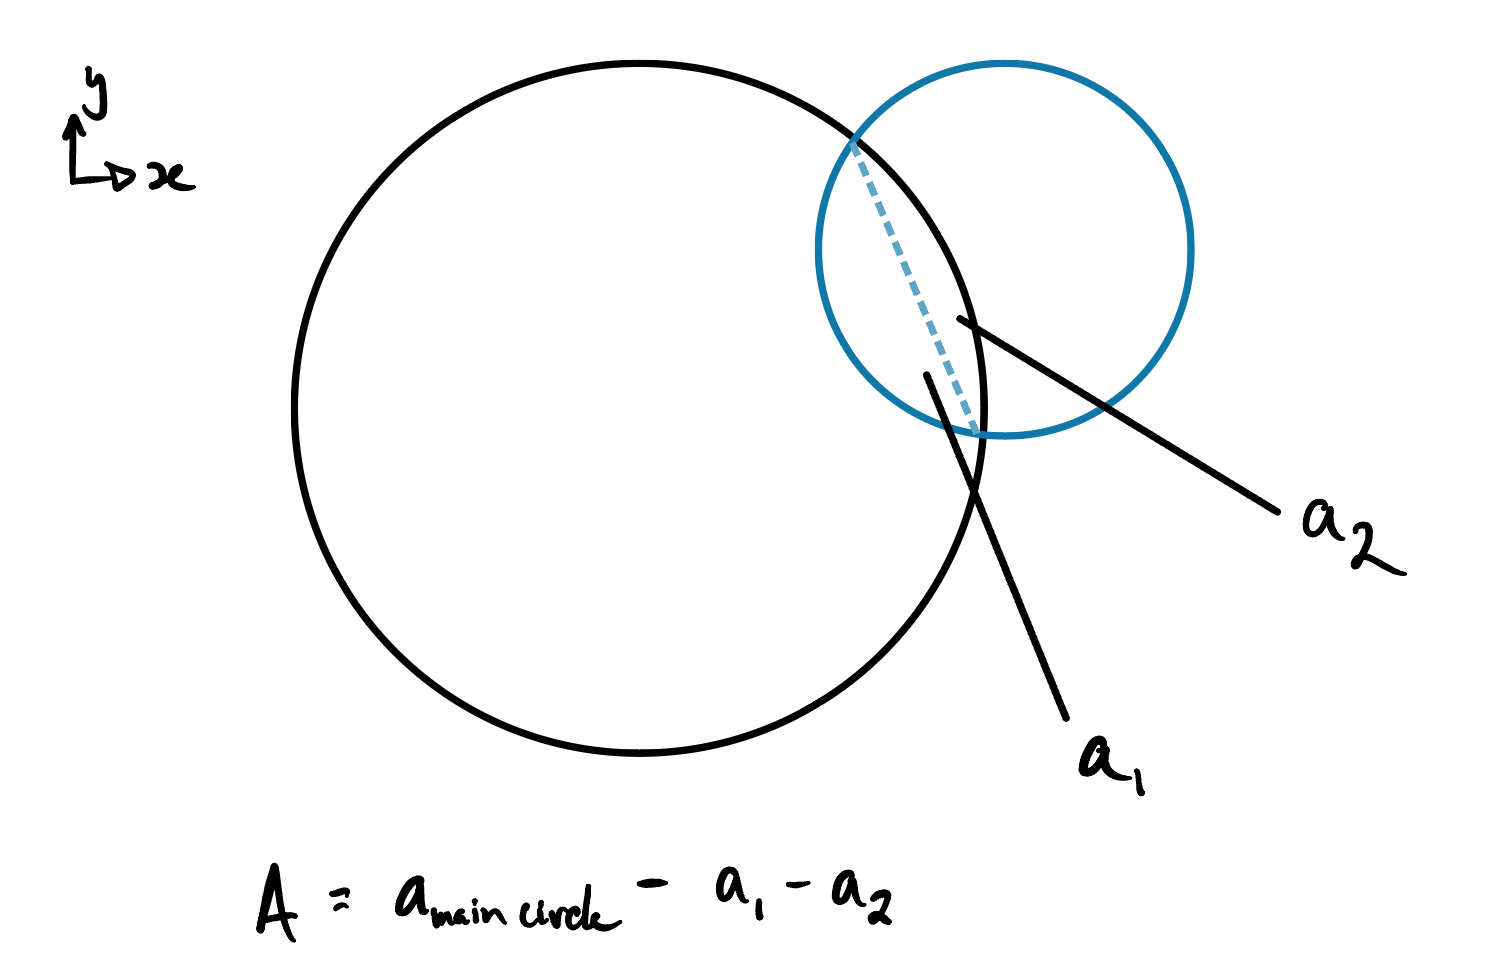 y
x
a₂
a₁
A = a_main circle - a₁ - a₂